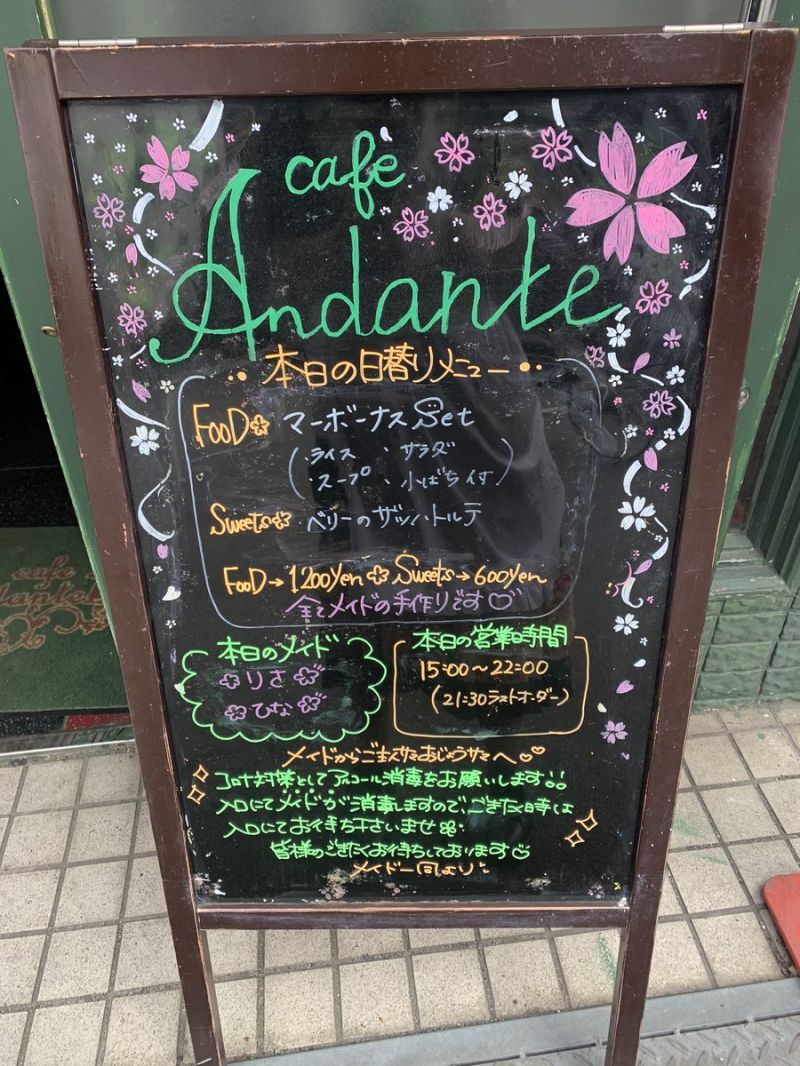 cafe
Andante
本日の日替りメニュー
FOOD マーボーナス Set
(・ライス ・サラダ
・スープ ・小ばち付)
Sweets ベリーのザッハトルテ
FOOD→1200yen Sweets→600yen
全てメイドの手作りです♡
本日のメイド
りさ
ひな
本日の営業時間
15:00～22:00
(21:30ラストオーダー)
メイドからご主人サマおじょうサマへ♡♡
コロナ対策としてアルコール消毒をお願いします!!
入口にてメイドが消毒しますので、ごきたく時は
入口にてお待ち下さいませ
皆様のごきたくお待ちしております♡
メイド一同より
cafe